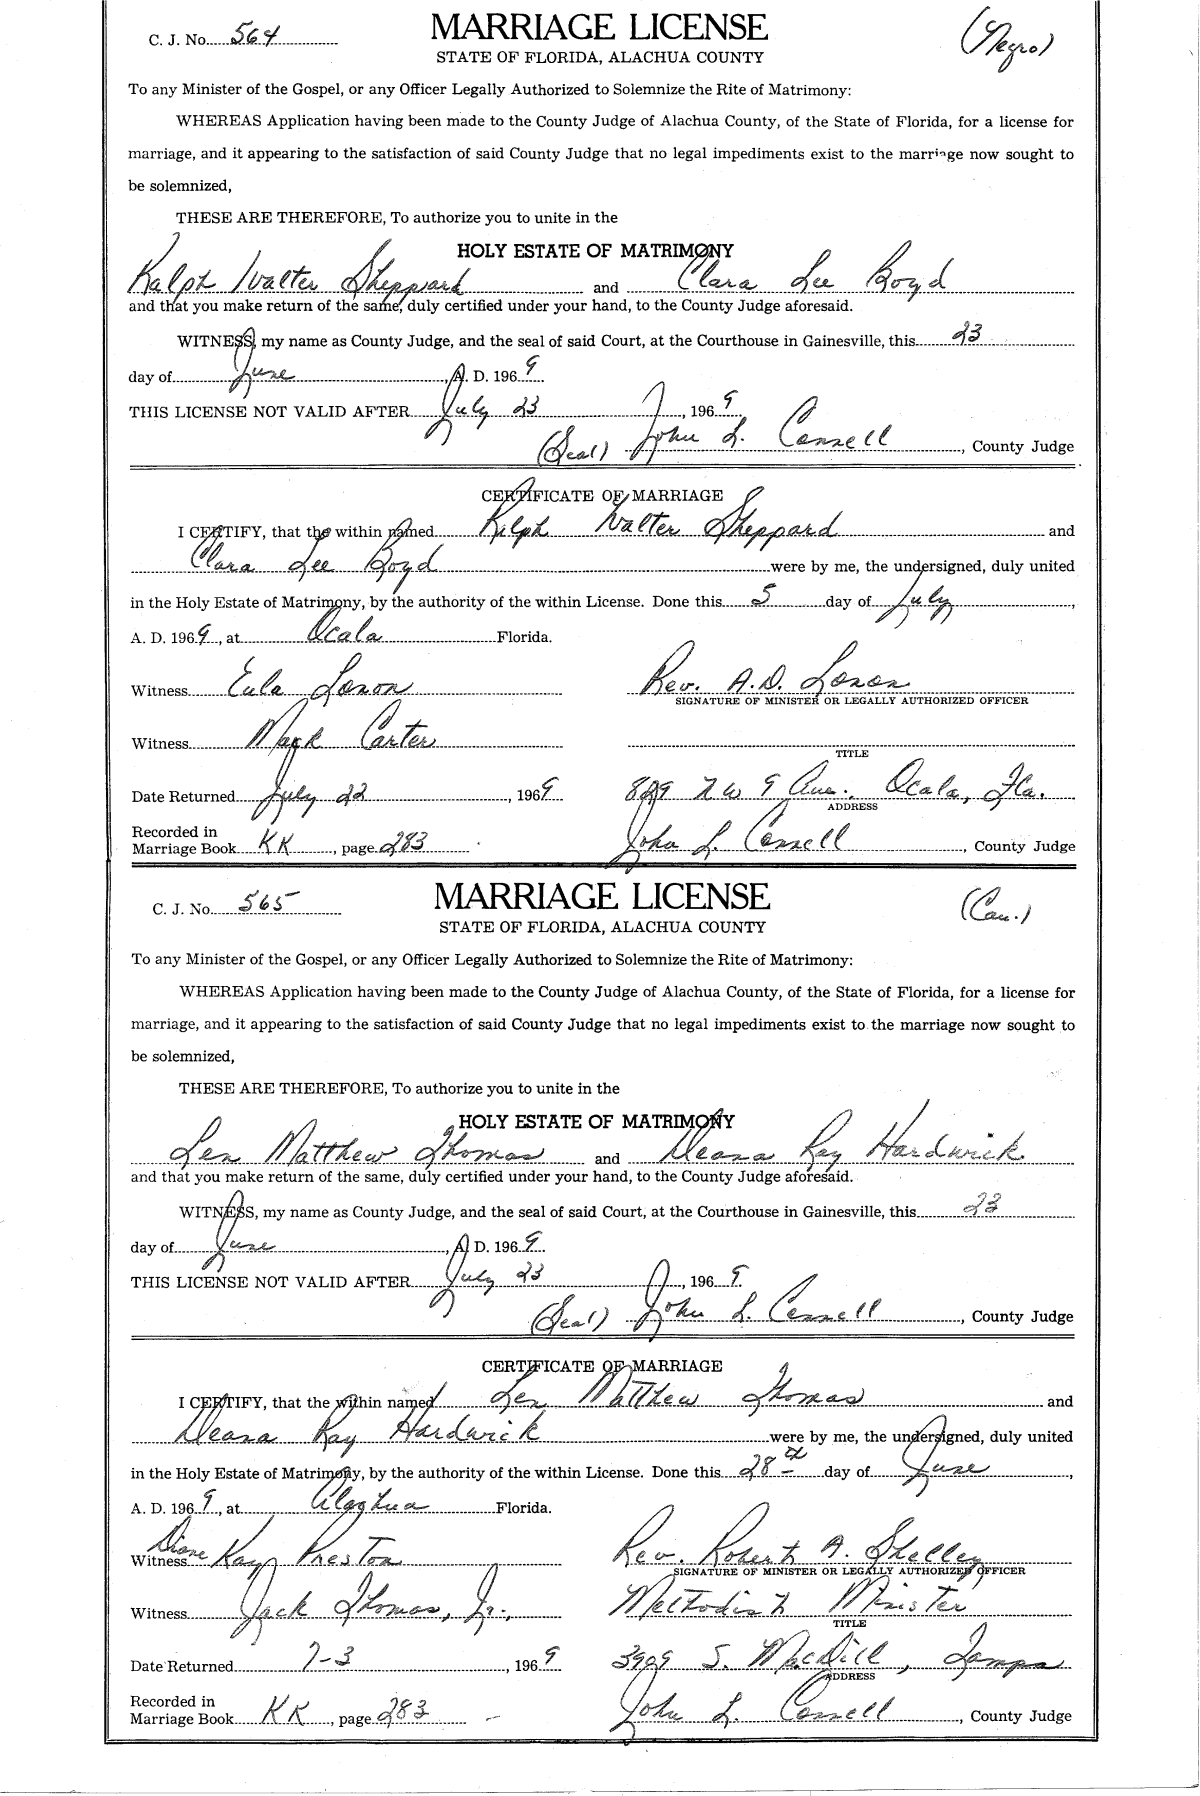 C. J. No. 564
MARRIAGE LICENSE
(Negro)
STATE OF FLORIDA, ALACHUA COUNTY
To any Minister of the Gospel, or any Officer Legally Authorized to Solemnize the Rite of Matrimony:
WHEREAS Application having been made to the County Judge of Alachua County, of the State of Florida, for a license for
marriage, and it appearing to the satisfaction of said County Judge that no legal impediments exist to the marriage now sought to
be solemnized,
THESE ARE THEREFORE, To authorize you to unite in the
HOLY ESTATE OF MATRIMONY
Ralph Walter Sheppard and Clara Lee Boyd
and that you make return of the same, duly certified under your hand, to the County Judge aforesaid.
WITNESS, my name as County Judge, and the seal of said Court, at the Courthouse in Gainesville, this 23
day of June, A. D. 1969
THIS LICENSE NOT VALID AFTER July 23, 1969
(Seal) John L. Connell, County Judge
CERTIFICATE OF MARRIAGE
I CERTIFY, that the within named Ralph Walter Sheppard and
Clara Lee Boyd were by me, the undersigned, duly united
in the Holy Estate of Matrimony, by the authority of the within License. Done this 5 day of July,
A. D. 1969, at Ocala Florida.
Witness Eula Lonon Rev. A.D. Lonon
SIGNATURE OF MINISTER OR LEGALLY AUTHORIZED OFFICER
Witness Mack Carter
TITLE
Date Returned July 22, 1969 829 NW 9 Ave. Ocala, Fla.
ADDRESS
Recorded in
Marriage Book KK, page 283 John L. Connell, County Judge
C. J. No. 565
MARRIAGE LICENSE
(Cau.)
STATE OF FLORIDA, ALACHUA COUNTY
To any Minister of the Gospel, or any Officer Legally Authorized to Solemnize the Rite of Matrimony:
WHEREAS Application having been made to the County Judge of Alachua County, of the State of Florida, for a license for
marriage, and it appearing to the satisfaction of said County Judge that no legal impediments exist to the marriage now sought to
be solemnized,
THESE ARE THEREFORE, To authorize you to unite in the
HOLY ESTATE OF MATRIMONY
Len Matthew Thomas and Deana Kay Hardwick
and that you make return of the same, duly certified under your hand, to the County Judge aforesaid.
WITNESS, my name as County Judge, and the seal of said Court, at the Courthouse in Gainesville, this 23
day of June, A. D. 1969.
THIS LICENSE NOT VALID AFTER July 23, 1969.
(Seal) John L. Connell, County Judge
CERTIFICATE OF MARRIAGE
I CERTIFY, that the within named Len Matthew Thomas and
Deana Kay Hardwick were by me, the undersigned, duly united
in the Holy Estate of Matrimony, by the authority of the within License. Done this 28th day of June,
A. D. 1969, at Alachua Florida.
Witness Diane Kay Preston Rev. Robert A. Shelley
SIGNATURE OF MINISTER OR LEGALLY AUTHORIZED OFFICER
Witness Jack Thomas, Jr., Methodist Minister
TITLE
Date Returned 7-3, 1969 3909 S. MacDill, Tampa
ADDRESS
Recorded in
Marriage Book KK, page 283 John L. Connell, County Judge